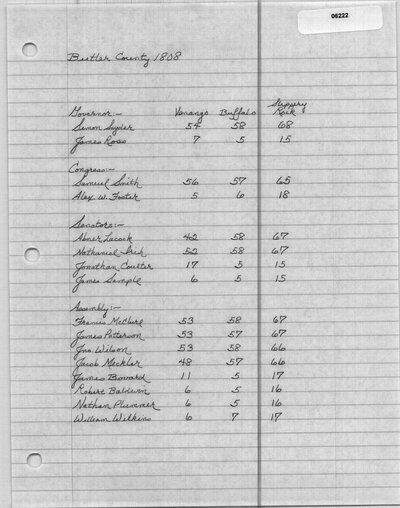 06222
Butler County 1808
Governor:- Venango Buffalo Slippery Rock
Simon Snyder 54 58 68
James Ross 7 5 15
Congress:-
Samuel Smith 56 57 65
Alex. W. Foster 5 6 18
Senators:-
Abner Lacock 42 58 67
Nathaniel Irish 52 58 67
Jonathan Coulter 17 5 15
James Sample 6 5 15
Assembly:-
Francis McClure 53 58 67
James Patterson 53 57 67
Jno. Wilson 53 58 66
Jacob Mechlar 48 57 66
James Bovard 11 5 17
Robert Baldwin 6 5 16
Nathan Plummer 6 5 16
William Wilkins 6 7 17